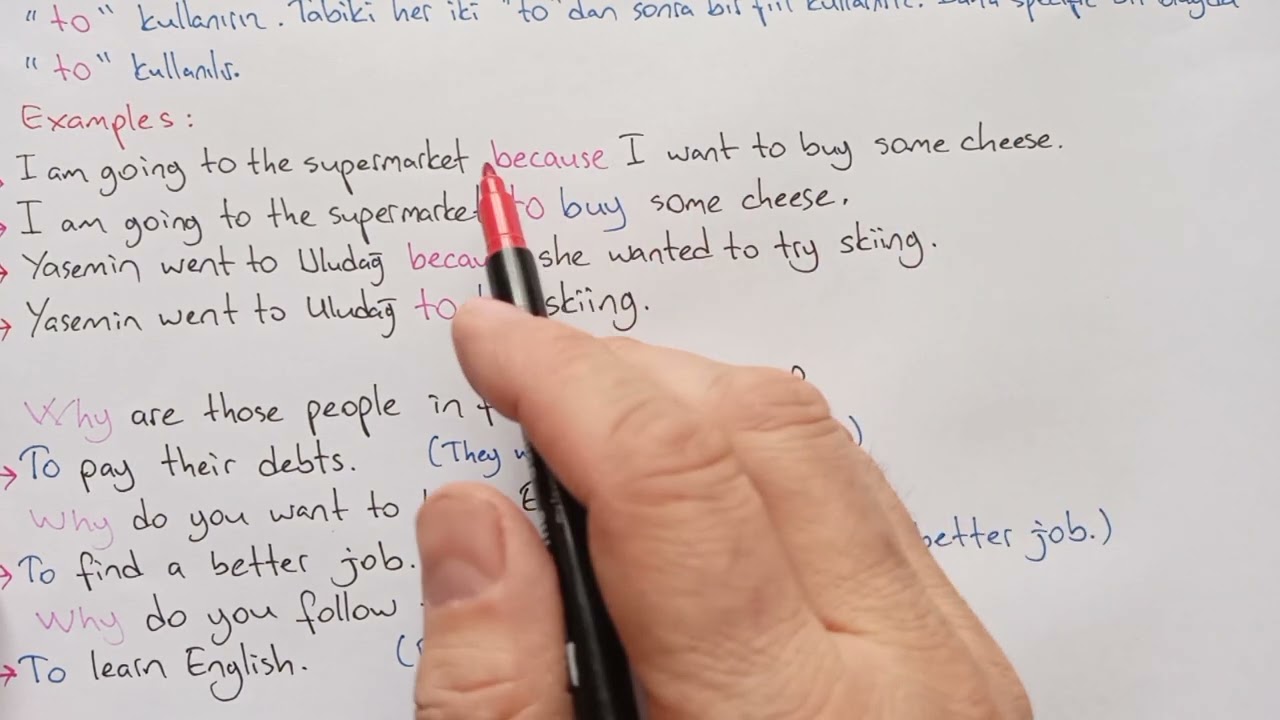 "to" kullanırın. Tabiki her iki "to" dan sonra bir fiil
"to" kullanılır.
Examples:
I am going to the supermarket because I want to buy some cheese.
I am going to the supermarket to buy some cheese.
Yasemin went to Uludağ she wanted to try skiing.
Yasemin went to Uludağ to skiing.
Why are those people in
To pay their debts. (They
Why do you want to
To find a better job. better job.)
Why do you follow
To learn English.